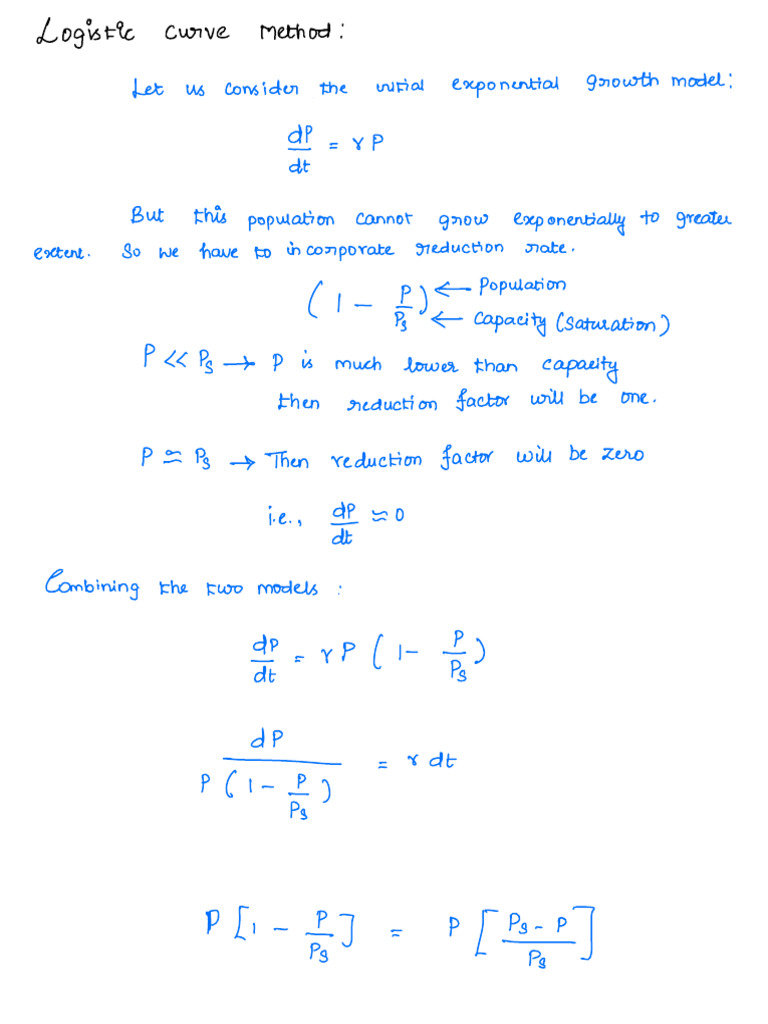 Logistic curve method:
Let us consider the initial exponential growth model:
dP/dt = r P
But this population cannot grow exponentially to greater
extent. So we have to incorporate reduction rate.
(1 - P/Ps) ← Population
← Capacity (Saturation)
P << Ps → P is much lower than capacity
then reduction factor will be one.
P ≃ Ps → Then reduction factor will be zero
i.e., dP/dt ≈ 0
Combining the two models :
dP/dt = r P (1 - P/Ps)
dP / P (1 - P/Ps) = r dt
P [1 - P/Ps] = P [Ps - P / Ps]